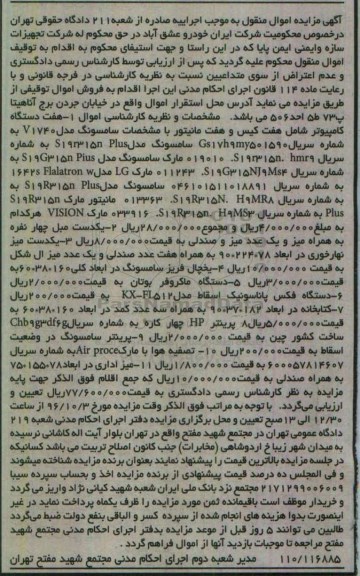 آگهی مزایده اموال منقول به موجب اجراییه صادره از شعبه ۲۱۱ دادگاه حقوقی تهران
درخصوص محکومیت شرکت ایران خودرو عشق آباد در حق محکوم له شرکت تجهیزات
سازه وایمنی ایمن پایا که در این راستا و جهت استیفای محکوم به اقدام به توقیف
اموال منقول محکوم علیه گردید که پس از ارزیابی توسط کارشناس رسمی دادگستری
و عدم اعتراض از سوی متداعیین نسبت به نظریه کارشناسی در فرجه قانونی و با
رعایت ماده ۱۱۴ قانون اجرای احکام مدنی این اجرا اقدام به فروش اموال توقیفی از
طریق مزایده می نماید آدرس محل استقرار اموال واقع در خیابان جردن برج آناهیتا
پ۷۳ ط۵ واحد۵۰۶ می باشد. مشخصات و نظریه کارشناسی اموال ۱-هفت دستگاه
کامپیوتر شامل هفت کیس و هفت مانیتور با مشخصات سامسونگ مدل V۱۷۴۰ به
شماره سریال سامسونگ مدل S۱۹r۳۱۵n Plus به شماره
سریال S۱۹r۳۱۵n. hmr۹ ۰۱۹۰۱۰ مارک سامسونگ مدل S۱۹G۳۱۵n Plus به
شماره سریال ۰۱۱۲۴۳ مارک LG مدل Flalatron w ۱۶۴۲s
به شماره سریال سامسونگ مدل S۱۹R۳۱۵n Plus به
شماره سریال ۰۱۳۳۶۳ مانیتور مارک S۱۹R۳۱۵n
Plus به شماره سریال ۰۳۳۹۱۶ مارک VISION هرکدام
به مبلغ ۴/۰۰۰/۰۰۰ریال و مجموع ۲۸/۰۰۰/۰۰۰ریال ۲-یکدست مبل چهار نفره
به همراه میز و یک عدد میز و صندلی به قیمت ۸/۰۰۰/۰۰۰ریال ۳-یکدست میز
نهارخوری در ابعاد به همراه هفت عدد صندلی و یک عدد میز ال شکل
به قیمت ۱۰/۰۰۰/۰۰۰ریال ۴-یخچال فریز سامسونگ در ابعاد کلی به
قیمت ۳/۰۰۰/۰۰۰ریال ۵-دستگاه ماکروفر بوتان به قیمت ۲/۰۰۰/۰۰۰ریال
۶-دستگاه فکس پاناسونیک اسقاط مدل KX-FL۵۱۲ به قیمت ۲۰۰/۰۰۰ریال
۷-کتابخانه در ابعاد به همراه سه عدد کمد در ابعاد به
قیمت ۵/۰۰۰/۰۰۰ریال ۸ پرینتر HP چهار کاره به شماره سریال
ساخت کشور چین به قیمت ۲/۰۰۰/۰۰۰ریال ۹-پرینتر سامسونگ در وضعیت
اسقاط به قیمت ۲۰۰/۰۰۰ریال ۱۰- تصفیه هوا با مارک Air proce به شماره سریال
۶۰۰۰۵۷۸۱۴۶۰۰ به قیمت ۱/۸۰۰/۰۰۰ریال ۱۱-میز اداری در ابعاد
به همراه صندلی به قیمت ۱۰/۰۰۰/۰۰۰ریال که جمع اقلام فوق الذکر جهت پایه
مزایده به نظر کارشناس رسمی دادگستری به قیمت ۷۷/۶۰۰/۰۰۰ریال تعیین و
ارزیابی می‌گردد. با توجه به مراتب فوق الذکر وقت مزایده مورخ ۹۶/۱۰/۳ از ساعت
۱۲/۳۰ الی ۱۳ صبح تعیین و محل برگزاری مزایده دفتر اجرای احکام مدنی شعبه ۲۱۹
دادگاه عمومی تهران در مجتمع شهید مفتح واقع در تهران بلوار آیت اله کاشانی نرسیده
به میدان شهر زیبا خ اردوشاهی (مخابرات) جنب کانون اصلاح تربیت می باشد کسانیکه
در جلسه مزایده بالاترین قیمت را پیشنهاد نمایند بعنوان برنده مزایده شناخته میشوند
و فی المجلس ده درصد قیمت پیشنهادی از برنده مزایده اخذ و بحساب سپرده سیبا
۲۱۷۱۲۹۹۰۰۶۰۰۹ مجتمع نزد بانک ملی ایران شعبه شهید کیانی نژاد واریز می گردد
و خریدار موظف است باقیمانده ثمن مورد مزایده را ظرف یکماه پرداخت نماید در غیر
اینصورت بدوا هزینه های انجام شده از سپرده کسر و الباقی بنفع دولت ضبط می‌گردد
طالبین می توانند ۵ روز قبل از موعد مزایده بدفتر اجرای احکام مدنی مجتمع شهید
مفتح مراجعه تا موجبات بازدید آنها از اموال فراهم گردد.
۱۱۰/۱۱۶۸۸۵ مدیر شعبه دوم اجرای احکام مدنی مجتمع شهید مفتح تهران